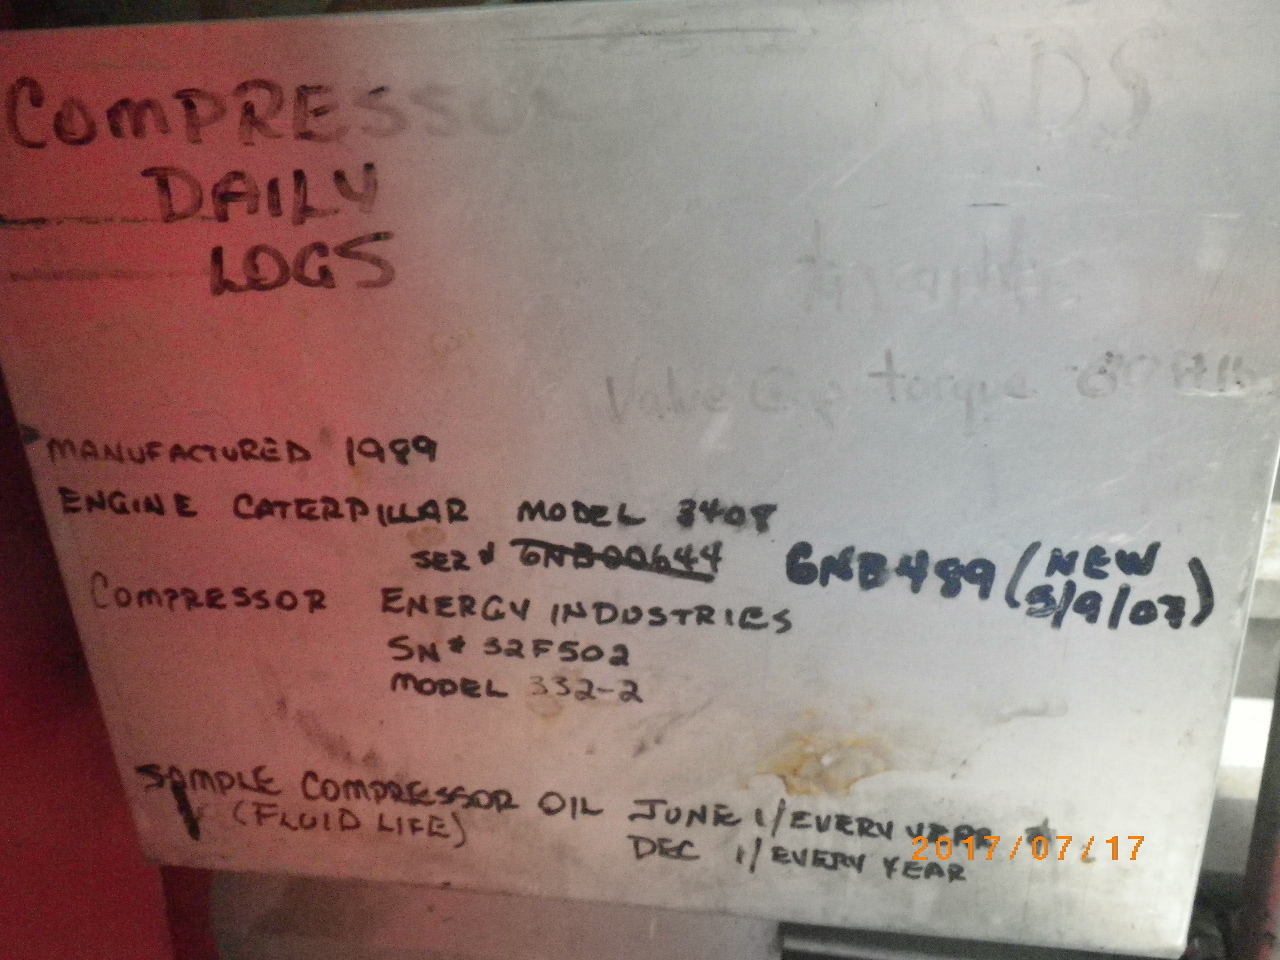 COMPRESSOR
DAILY
LOGS
MSDS
Valve Cap torque
MANUFACTURED 1989
ENGINE CATERPILLAR MODEL 3408
SER # 6NB00644 6NB489 (NEW
3/9/07)
COMPRESSOR ENERGY INDUSTRIES
SN# 32F502
MODEL 332-2
SAMPLE COMPRESSOR OIL JUNE 1/EVERY YEAR &
(FLUID LIFE) DEC 1/EVERY YEAR
2017/07/17